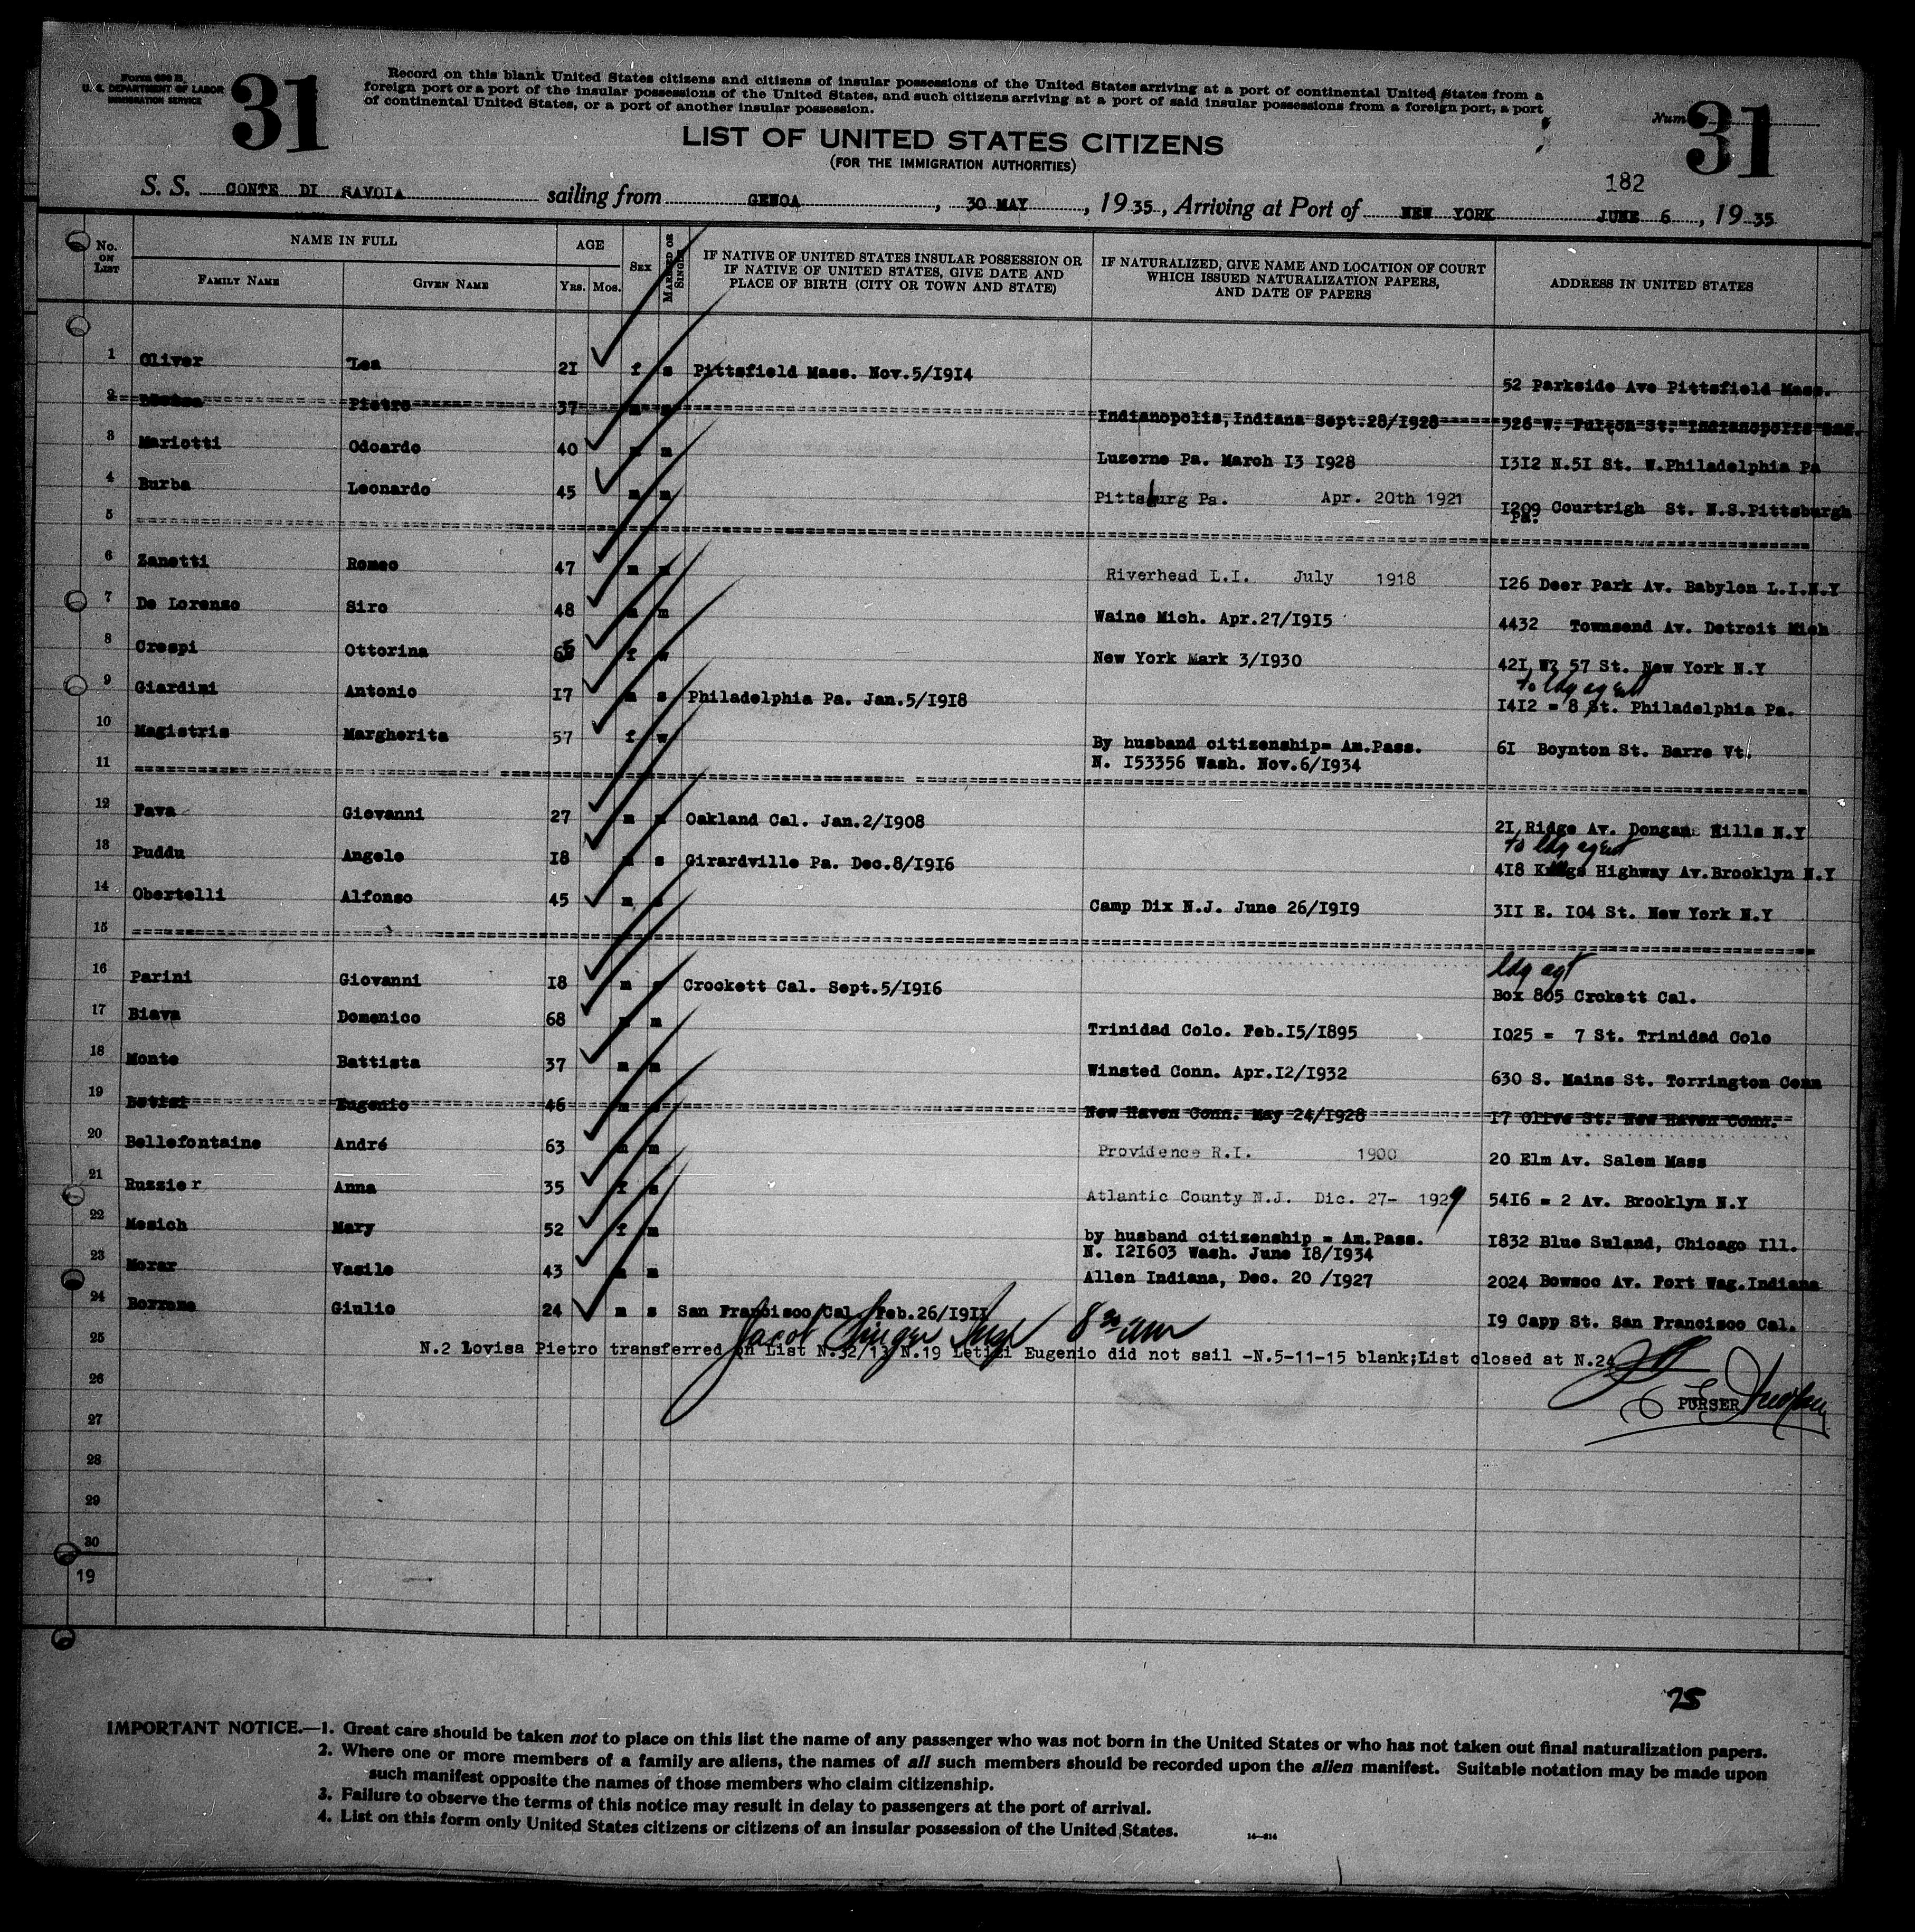 Form 630 B
U. S. DEPARTMENT OF LABOR
IMMIGRATION SERVICE
31
Record on this blank United States citizens and citizens of insular possessions of the United States arriving at a port of continental United States from a
foreign port or a port of the insular possessions of the United States, and such citizens arriving at a port of said insular possessions from a foreign port, a port
of continental United States, or a port of another insular possession.
31
LIST OF UNITED STATES CITIZENS
(FOR THE IMMIGRATION AUTHORITIES)
182
S. S. CONTE DI SAVOIA sailing from GENOA, 30 MAY, 1935, Arriving at Port of NEW YORK JUNE 6, 1935
No. ON LIST
NAME IN FULL
FAMILY NAME
GIVEN NAME
AGE
YRS. MOS.
SEX
MARRIED OR SINGLE
IF NATIVE OF UNITED STATES INSULAR POSSESSION OR
IF NATIVE OF UNITED STATES, GIVE DATE AND
PLACE OF BIRTH (CITY OR TOWN AND STATE)
IF NATURALIZED, GIVE NAME AND LOCATION OF COURT
WHICH ISSUED NATURALIZATION PAPERS,
AND DATE OF PAPERS
ADDRESS IN UNITED STATES
1 Oliver Lea 21 f s Pittsfield Mass. Nov.5/1914 52 Parkside Ave Pittsfield Mass.
2 Pietro 37 Indianopolis, Indiana Sept.28/1928 526 W. Fulton St. Indianopolis Ind.
3 Mariotti Odoardo 40 m m Luzerne Pa. March 13 1928 1312 N.51 St. W.Philadelphia Pa
4 Burba Leonardo 45 m m Pittsburg Pa. Apr. 20th 1921 1209 Courtrigh St. N.S.Pittsburgh
Pa.
5
6 Zanetti Romeo 47 m m Riverhead L.I. July 1918 126 Deer Park Av. Babylon L.I.N.Y
7 De Lorenzo Siro 48 m m Waine Mich. Apr.27/1915 4432 Townsend Av. Detroit Mich
8 Crespi Ottorina f w New York Mark 3/1930 421 W? 57 St. New York N.Y
to ldg agent
9 Giardini Antonio 17 m s Philadelphia Pa. Jan.5/1918 1412 = 8 St. Philadelphia Pa.
10 Magistris Margherita 57 f w By husband citizenship= Am.Pass. 61 Boynton St. Barre Vt.
N. 153356 Wash. Nov.6/1934
11
12 Fava Giovanni 27 m Oakland Cal. Jan.2/1908 21 Ridge Av. Dongan Hills N.Y
to ldg agent
13 Puddu Angelo 18 s Girardville Pa. Dec.8/1916 418 Kings Highway Av.Brooklyn N.Y
14 Obertelli Alfonso 45 m Camp Dix N.J. June 26/1919 311 E. 104 St. New York N.Y
15
ldg agt
16 Parini Giovanni 18 m Crockett Cal. Sept.5/1916 Box 805 Crokett Cal.
17 Biava Domenico 68 m m Trinidad Colo. Feb.15/1895 1025 = 7 St. Trinidad Colo
18 Monte Battista 37 m m Winsted Conn. Apr.12/1932 630 S. Mains St. Torrington Conn
19 Letizi Eugenio 46 m New Haven Conn. May 24/1928 17 Olive St. New Haven Conn.
20 Bellefontaine André 63 m m Providence R.I. 1900 20 Elm Av. Salem Mass
21 Russier Anna 35 f Atlantic County N.J. Dic. 27- 1929 5416 = 2 Av. Brooklyn N.Y
22 Mesich Mary 52 f m by husband citizenship = Am.Pass. 1832 Blue Suland, Chicago Ill.
N. 121603 Wash. June 18/1934
23 Morar Vasile 43 m m Allen Indiana, Dec. 20 /1927 2024 Bowsoc Av. Fort Wag.Indiana
24 Giulio 24 m s San Francisco Cal. Feb.26/1911 19 Capp St. San Francisco Cal.
Jacob 8 30 am
25 N.2 Lovisa Pietro transferred on List N.32/13 N.19 Letizi Eugenio did not sail -N.5-11-15 blank;List closed at N.24
26
PURSER
27
28
29
30
19
75
IMPORTANT NOTICE.—1. Great care should be taken not to place on this list the name of any passenger who was not born in the United States or who has not taken out final naturalization papers.
2. Where one or more members of a family are aliens, the names of all such members should be recorded upon the alien manifest. Suitable notation may be made upon
such manifest opposite the names of those members who claim citizenship.
3. Failure to observe the terms of this notice may result in delay to passengers at the port of arrival.
4. List on this form only United States citizens or citizens of an insular possession of the United States.